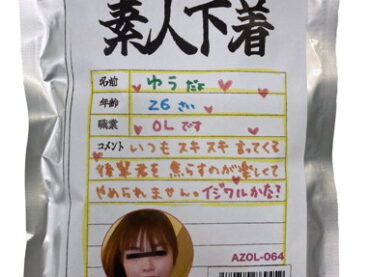 素人下着
名前 ゆうだよ
年齢 26さい
職業 OLです
コメント いつもスキスキ言ってくる
後輩君を焦らすのが楽しくて
やめられません。イジワルかな?
AZOL-064